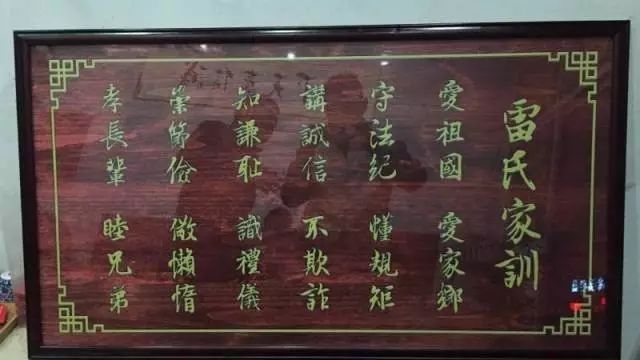 雷氏家訓
愛祖國 愛家鄉
守法紀 懂規矩
講誠信 不欺詐
知謙耻 識禮儀
崇節儉 儆懶惰
孝長輩 睦兄弟